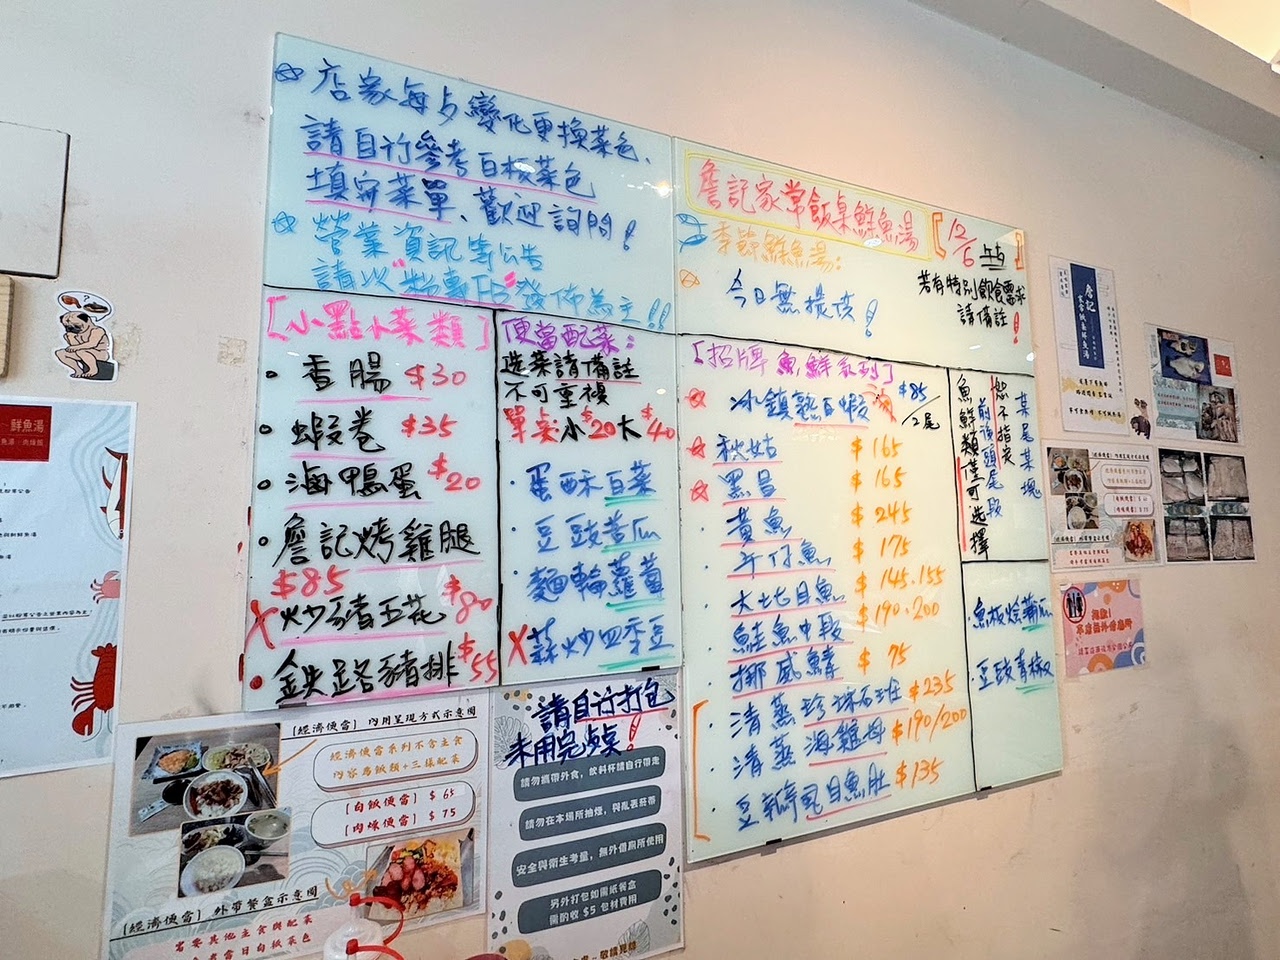 店家每占變化更換菜色、
請自行參考白板菜色
填寫菜單、歡迎詢問!
營業資訊等公告
請以"粉專FB"發佈為主!!
詹記家常飯桌鮮魚湯
【12/6 上午】
季節鮮魚湯:
今日無提供!
若有特別飲食需求
請備註!
【小點小菜類】
香腸 $30
蝦卷 $35
滷鴨蛋 $20
詹記烤雞腿
$85
X 炒豬五花 $80
鉄路豬排 $55
便當配菜:
選菜請備註
不可重複
單點小$20大$40
蛋酥白菜
豆豉苦瓜
麵輪蘿蔔
X 蒜炒四季豆
【招牌魚鮮系列】
小鎮熟白蝦 $85/2尾
秋姑 $165
黑昌 $165
黃魚 $245
午仔魚 $175
大七目魚 $145.155
鮭魚中段 $190.200
挪威鯖 $75
清蒸珍珠石斑 $235
清蒸海雞母 $190/200
豆瓣虱目魚肚 $135
魚鮮類僅可選擇
前後頭尾段
恕不指定
某尾某塊
魚板燴蒲瓜
豆豉青椒
鮮魚湯
[經濟便當] 內用呈現方式示意圖
經濟便當系列不含主食
內容為飯類+三樣配菜
[白飯便當] $65
[肉燥便當] $75
[經濟便當] 外帶餐盒示意圖
若要其他主食與配菜
請自行打包
未用完餐桌!
請勿攜帶外食,飲料杯請自行帶走
請勿在本場所抽煙,與亂丟菸蒂
安全與衛生考量,無外借廁所使用
另外打包如需紙餐盒
需酌收 $5 包材費用
敬請見諒
詹記
家常飯桌鮮魚湯